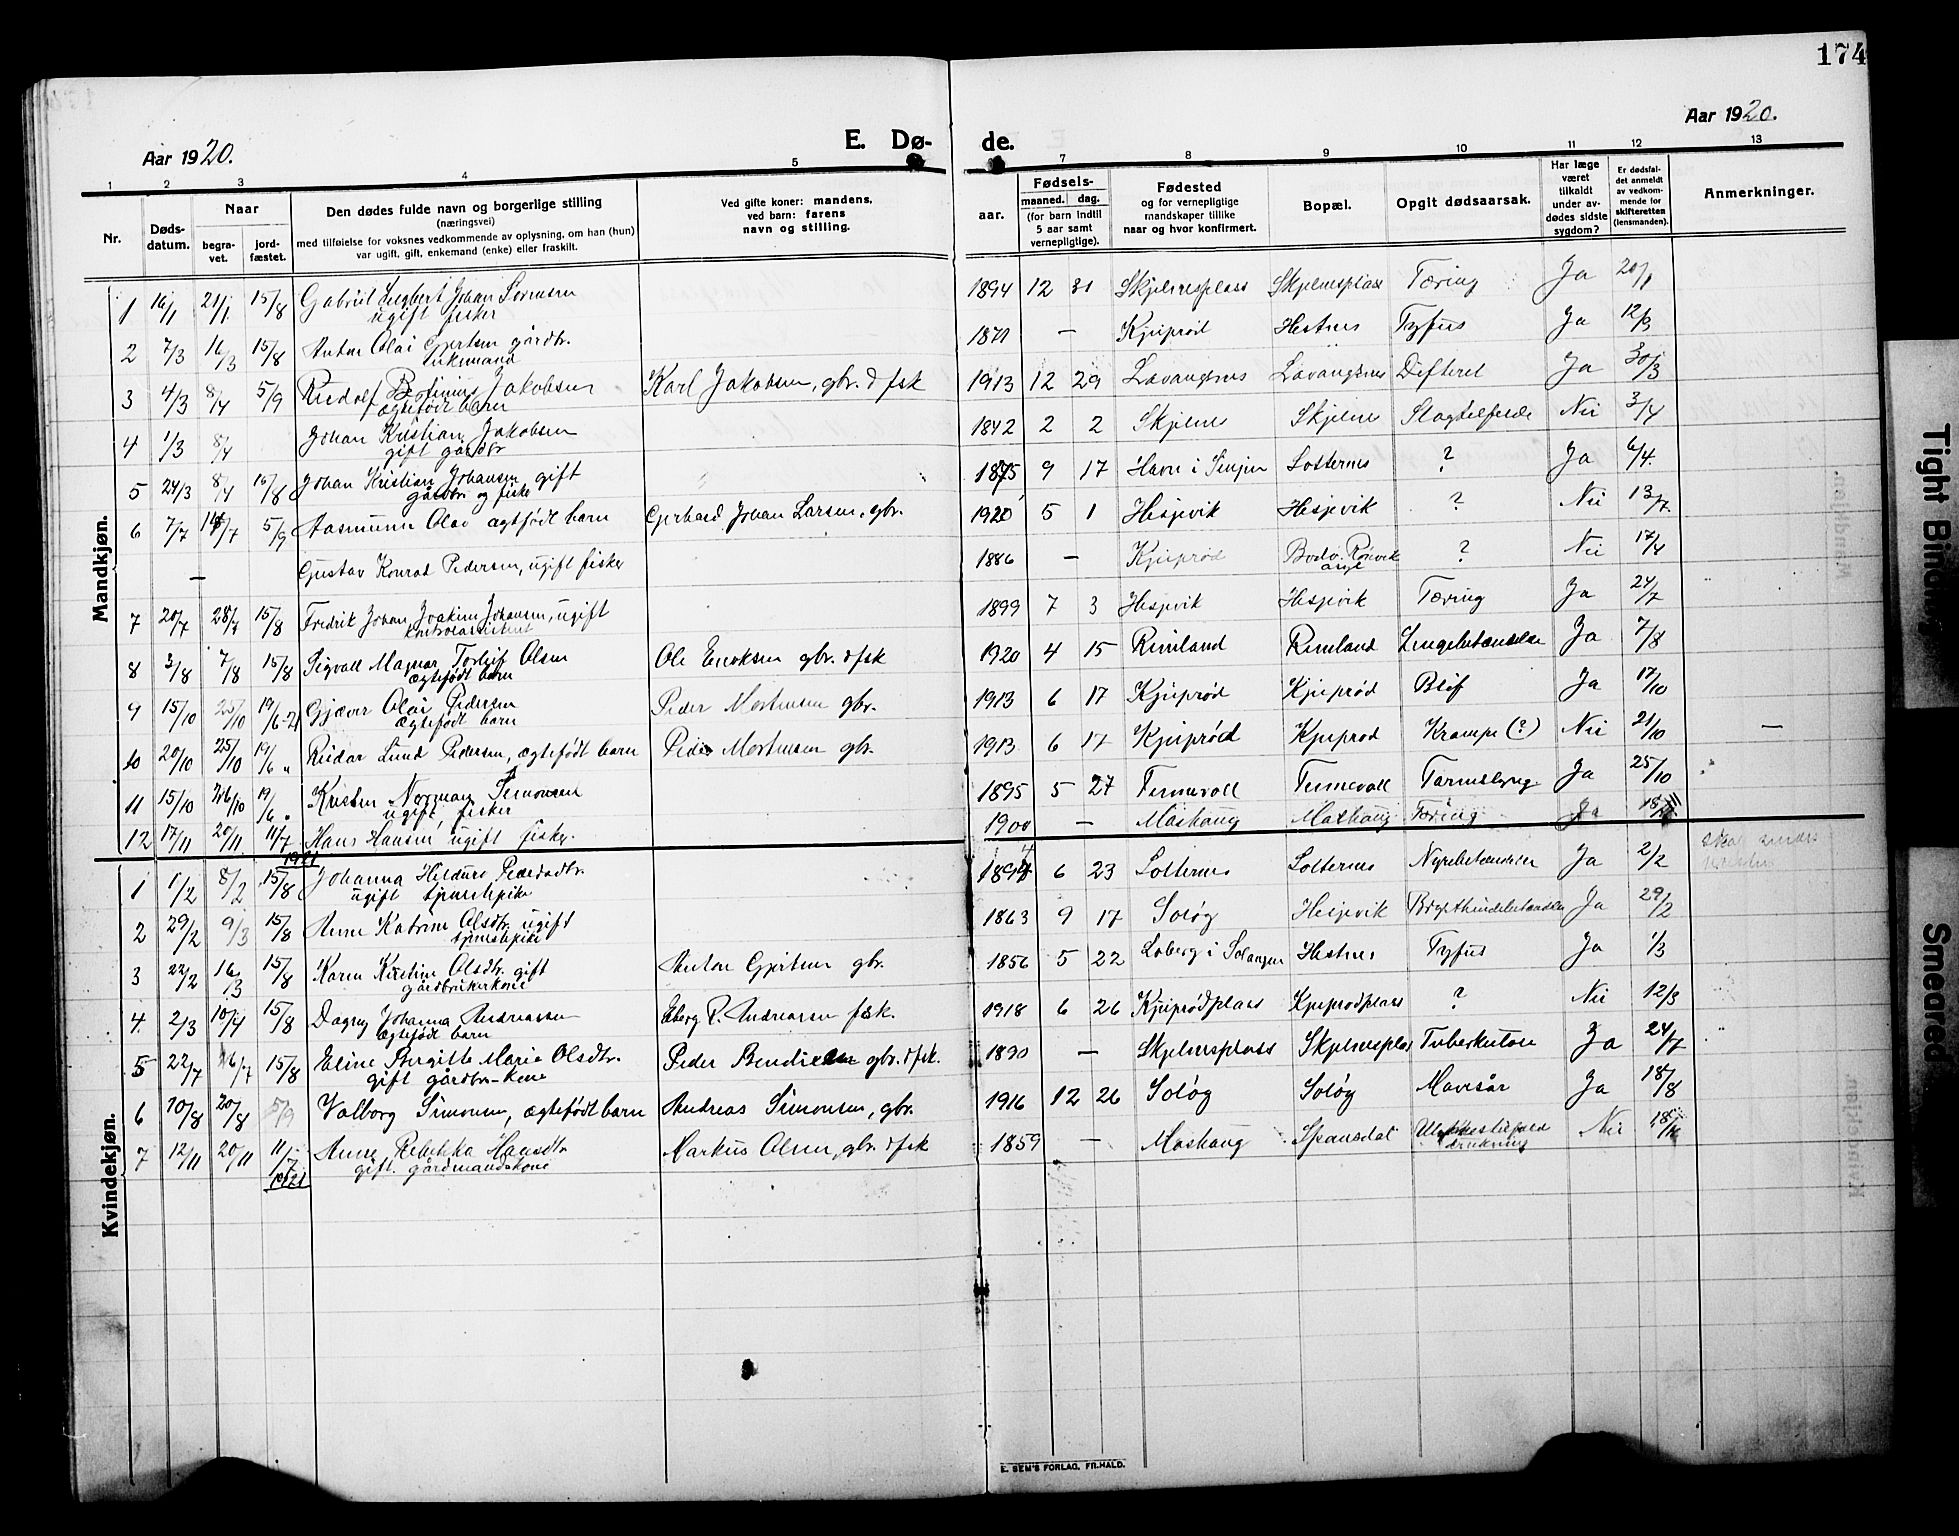 174
Aar 1920.
E. Dø-
de.
Aar 1920.
1 2 3 4 5 7 8 9 10 11 12 13
Nr.
Døds-
datum.
Naar
begra-
vet.
jord-
fæstet.
Den dødes fulde navn og borgerlige stilling
(næringsvei)
med tilføielse for voksnes vedkommende av oplysning, om han (hun)
var ugift, gift, enkemand (enke) eller fraskilt.
Ved gifte koner: mandens,
ved barn: farens
navn og stilling.
aar.
Fødsels-
maaned. dag.
(for barn indtil
5 aar samt
vernepligtige).
Fødested
og for vernepligtige
mandskaper tillike
naar og hvor konfirmert.
Bopæl.
Opgit dødsaarsak.
Har læge
været
tilkaldt
under av-
dødes sidste
sygdom?
Er dødsfal-
det anmeldt
av vedkom-
mende for
skifteretten
(lensmanden).
Anmerkninger.
Mandkjøn.
1 16/1 21/1 15/8 Gabriel Johan Sørensen 1894 12 31 Skjelnesplass Skjelnesplass Tæring Ja 20/1
ugift fisker
2 7/3 16/3 15/8 Anton Olai Gjertsen gårdbr. — Kjeiprød Hestnes Tyfus Ja 12/3
enkemand
3 4/3 8/4 5/9 Rudolf Jakobsen Karl Jakobsen, gbr. & fsk 1913 12 29 Lavangsnes Lavangsnes Difterit Ja 30/3
ægtefødt barn
4 1/3 8/4 Johan Kristian Jakobsen 1842 2 2 Skjelnes Skjelnes Slagtilfelde Nei 3/4
gift gårdbr
5 24/3 8/4 15/8 Johan Kristian Johansen gift 1875 9 17 Havn i Senjen Solternes ? Ja 6/4.
gårdbr og fisker
6 7/7 14/7 5/9 Aasmunn Olav ægtefødt barn Gerhard Johan Larsen, gbr. 1920 5 1 Hesjevik Hesjevik ? Nei 13/7.
— Gustav Konrad Pedersen, ugift fisker 1886 — Kjeiprød Bodø. Rønvik ? Nei 17/4
asyl
7 20/7 28/7 15/8 Fredrik Johan Joakim Johansen, ugift 1899 7 3 Hesjevik Hesjevik Tæring Ja 24/7
kontorassistent
8 3/8 7/8 15/8 Sigvall Magnar Torleif Olsen Ole Eriksen gbr. & fsk 1920 4 15 Renland Renland Lungebetændelse Ja 7/8
ægtefødt barn
9 15/10 25/10 19/6-21 Gjæver Olai Pedersen Peder Mortensen gbr. 1913 6 17 Kjeiprød Kjeiprød Ja 17/10
ægtefødt barn
10 20/10 25/10 19/6 " Reidar Lund Pedersen, ægtefødt barn Peder Mortensen gbr. 1913 6 17 Kjeiprød Kjeiprød Krampe (?) Nei 21/10 —
11 15/10 26/10 19/6 " Kristen Norman Simonsen 1895 5 27 Tennevoll Tennevoll Tarmslyng Ja 25/10
ugift, fisker
12 17/11 20/11 11/7 Hans Hansen ugift fisker. 1900 — Mashaug Mashaug Tæring Ja
1921
Kvindekjøn.
1 1/2 8/2 15/8 Johanna 1894 6 23 Solternes Solternes Nyrebetændelse Ja 2/2
ugift tjenestepike
2 29/2 9/3 15/8 Anne Katrine Olsdtr. ugift 1863 9 17 Soløg Hesjevik Brysthindebetændelse Ja 29/2
tjenestepike
3 22/2 16/3 15/8 Karen Kirstine Olsdtr. gift Anton Gjertsen gbr. 1856 5 22 Loberg i Salangen Hestnes Tyfus Ja 1/3
gårdbrukerkone
4 2/3 10/4 15/8 Dagny Johanna Andreassen Eberg R. Andreassen fsk. 1918 6 26 Kjeiprødplass Kjeiprødplass ? Nei 12/3
ægtefødt barn
5 22/7 26/7 15/8 Eline Birgitte Marie Olsdtr. Peder Bendiksen gbr. & fsk. 1890 — Skjelnesplass Skjelnesplas Tuberkulose Ja 24/7
gift gårdbr-kone
6 10/8 20/8 5/9 Valborg Simonsen, ægtefødt barn Andreas Simonsen, gbr. 1916 12 26 Soløg Soløg Mavesår Ja 18/8
7 12/11 20/11 11/7 Anne Rebekka Hansdtr Markus Olsen, gbr. & fsk 1859 — Mashaug Spansdal Ulykkestilfeld Nei 18/11
gift. gårdmandskone drukning
1921
E. SEM'S FORLAG, FR.HALD.
Tight Binding
Smeared